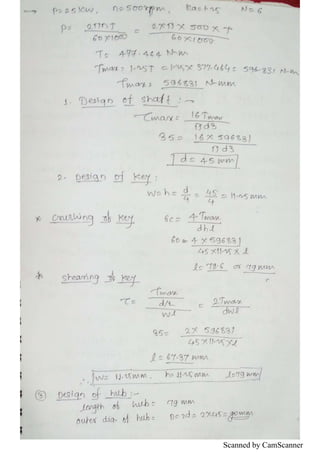 → P= 25 KW, n= 500 rpm, Ka= 1.25 N=6
P= 2πnT / 60×1000 = 2×π×500×T / 60×1000
T= 477.464 N-m
Tmax= 1.25T = 1.25× 477.464 = 596.831 N-m
Tmax= 596831 N-mm
1. Design of shaft :-
τmax= 16Tmax / πd3
35= 16×596831 / πd3
d= 45 mm
2. Design of key :
W=h= d/4 = 45/4 = 11.25 mm
* Crushing of Key σc= 4.Tmax / dhl
60= 4×596831 / 45×11.25×l
l= 78.6 or 79mm
* Shearing of key
τ= Tmax / d/2 / Wl = 2Tmax / dwl
35= 2×596831 / 45×11.25×l
l= 67.37 mm
∴ W= 11.25mm, h= 11.25mm l=79mm
③ Design of hub :-
length of hub= 79 mm
outer dia of hub= D=2d= 2×45= 90mm
Scanned by CamScanner